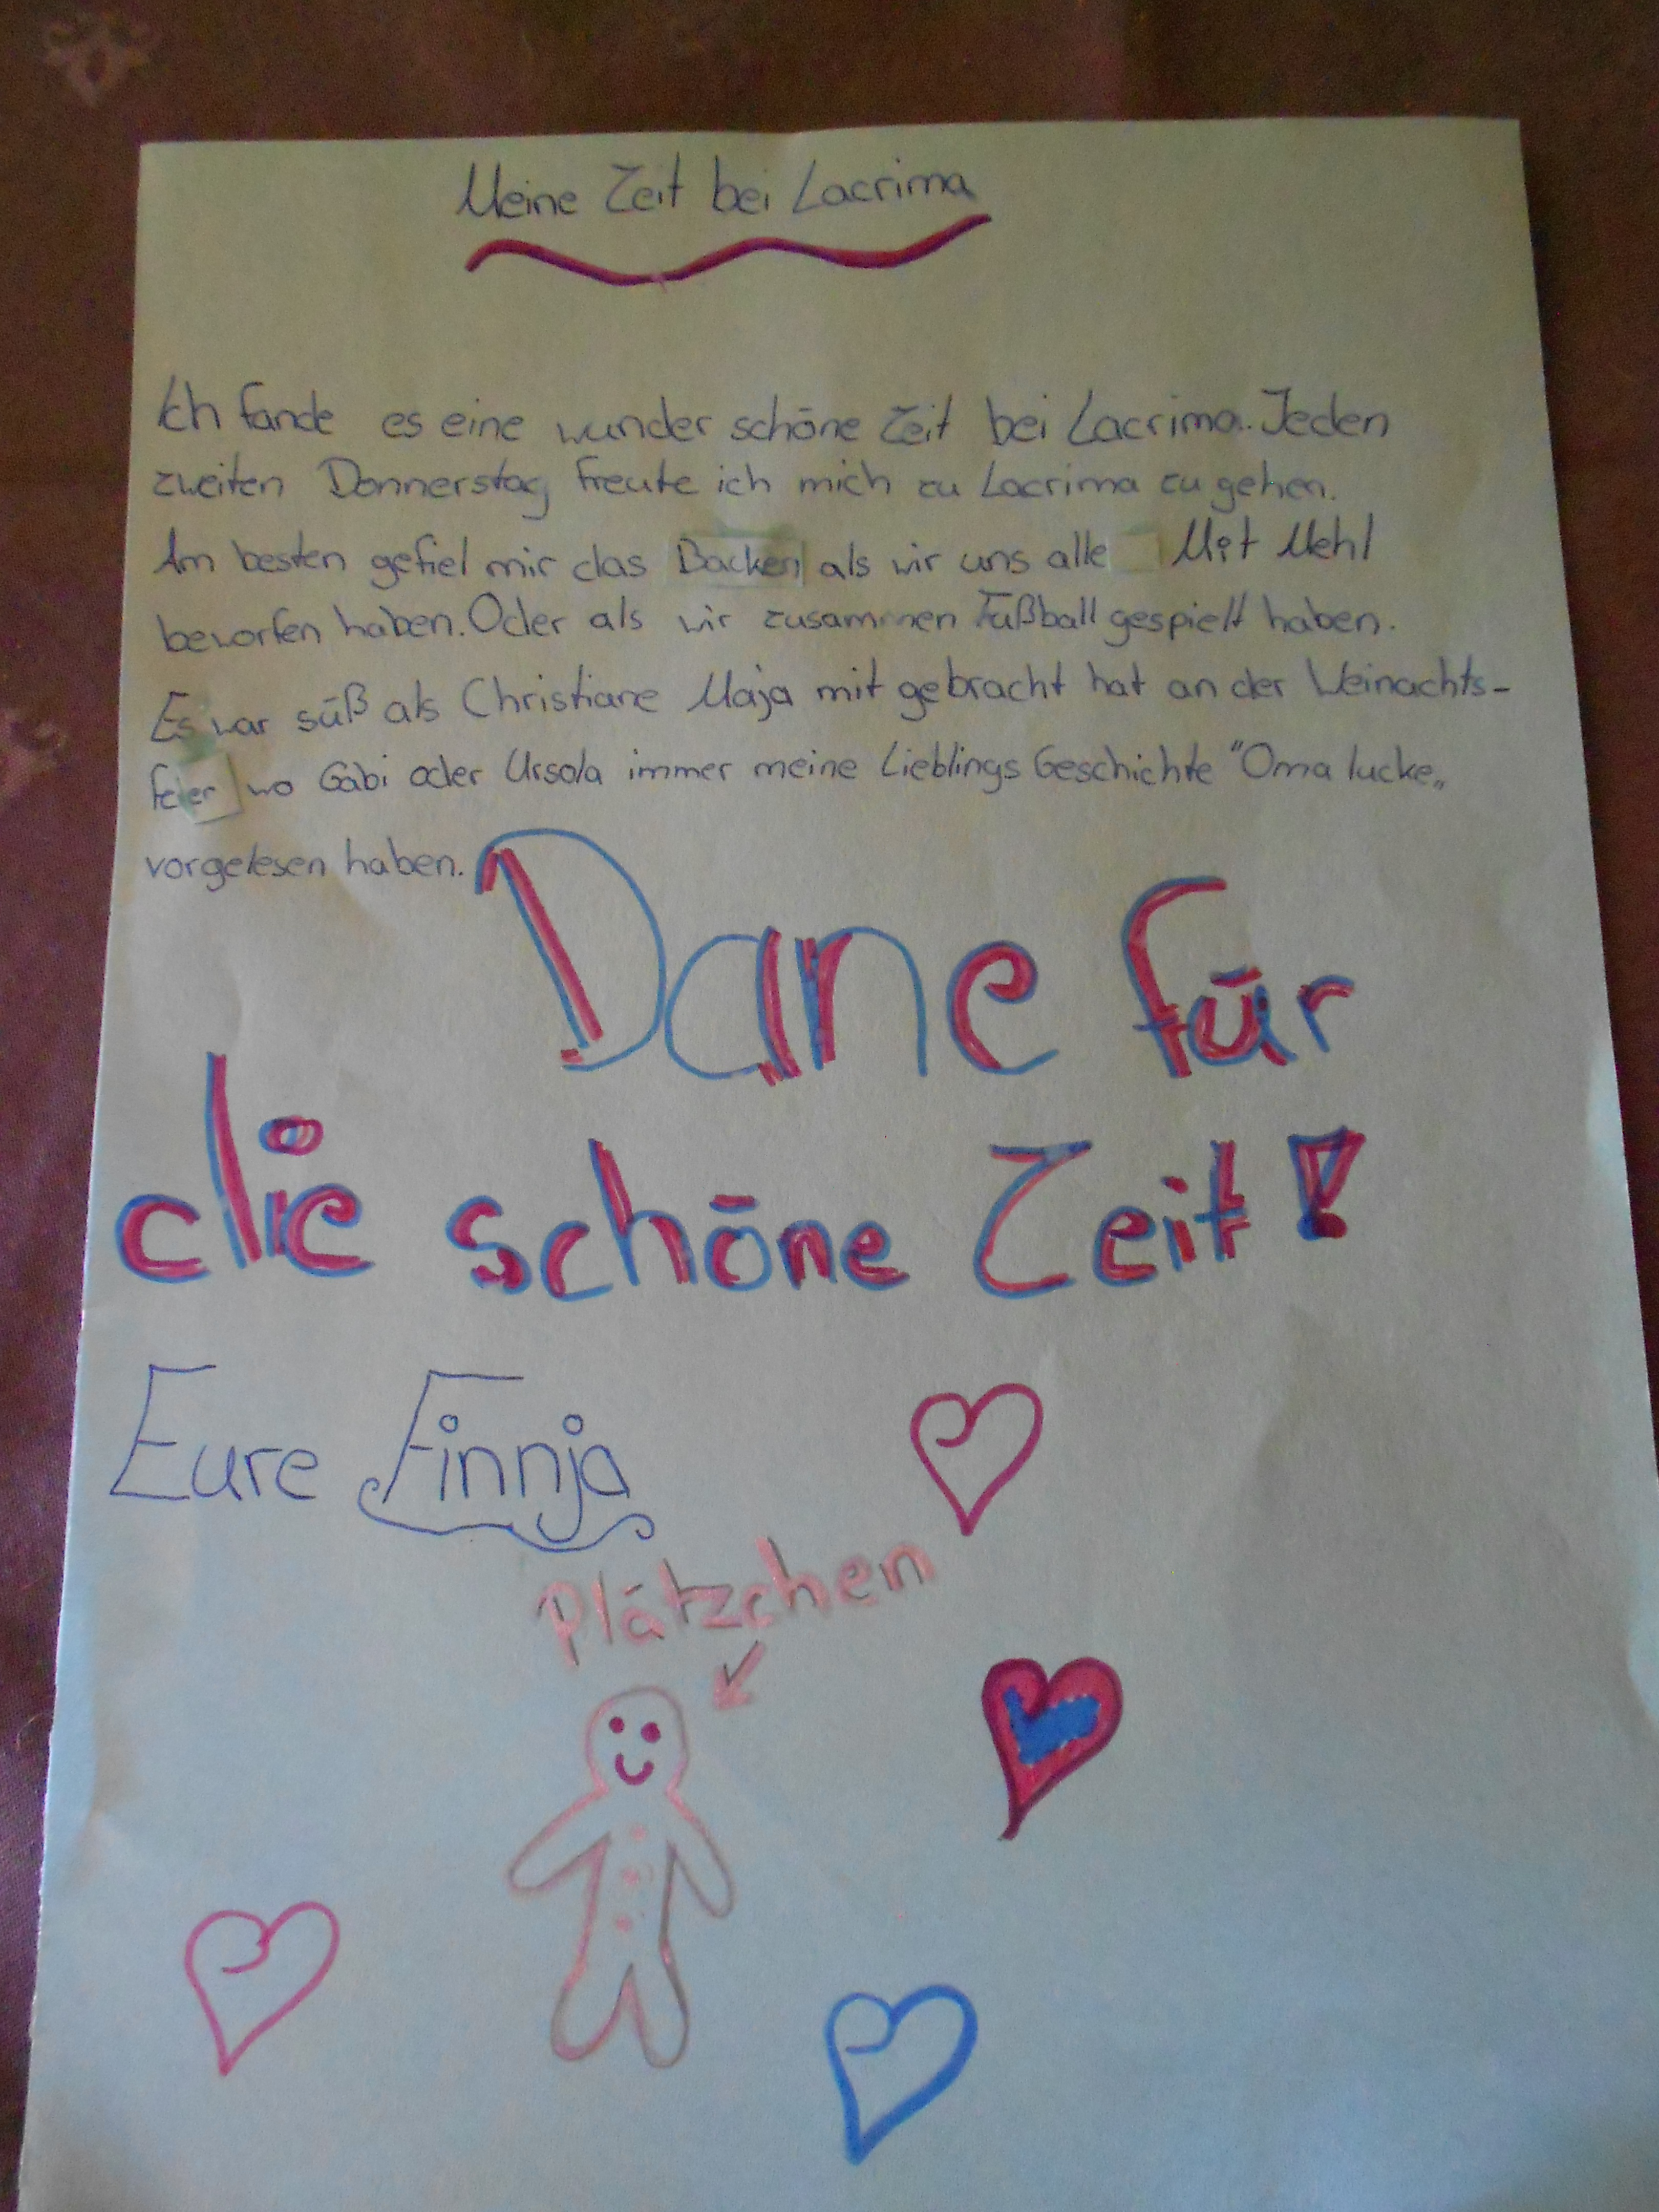 Meine Zeit bei Lacrima
Ich fande es eine wunder schöne Zeit bei Lacrima. Jeden
zweiten Donnerstag freute ich mich zu Lacrima zu gehen.
Am besten gefiel mir das Backen als wir uns alle Mit Mehl
beworfen haben. Oder als wir zusammen Fußball gespielt haben.
Es war süß als Christiane Maja mit gebracht hat an der Weinachts-
feier wo Gabi oder Ursola immer meine Lieblings Geschichte "Oma lucke„
vorgelesen haben.
Dane für
die schöne Zeit!
Eure Finnja
Plätzchen